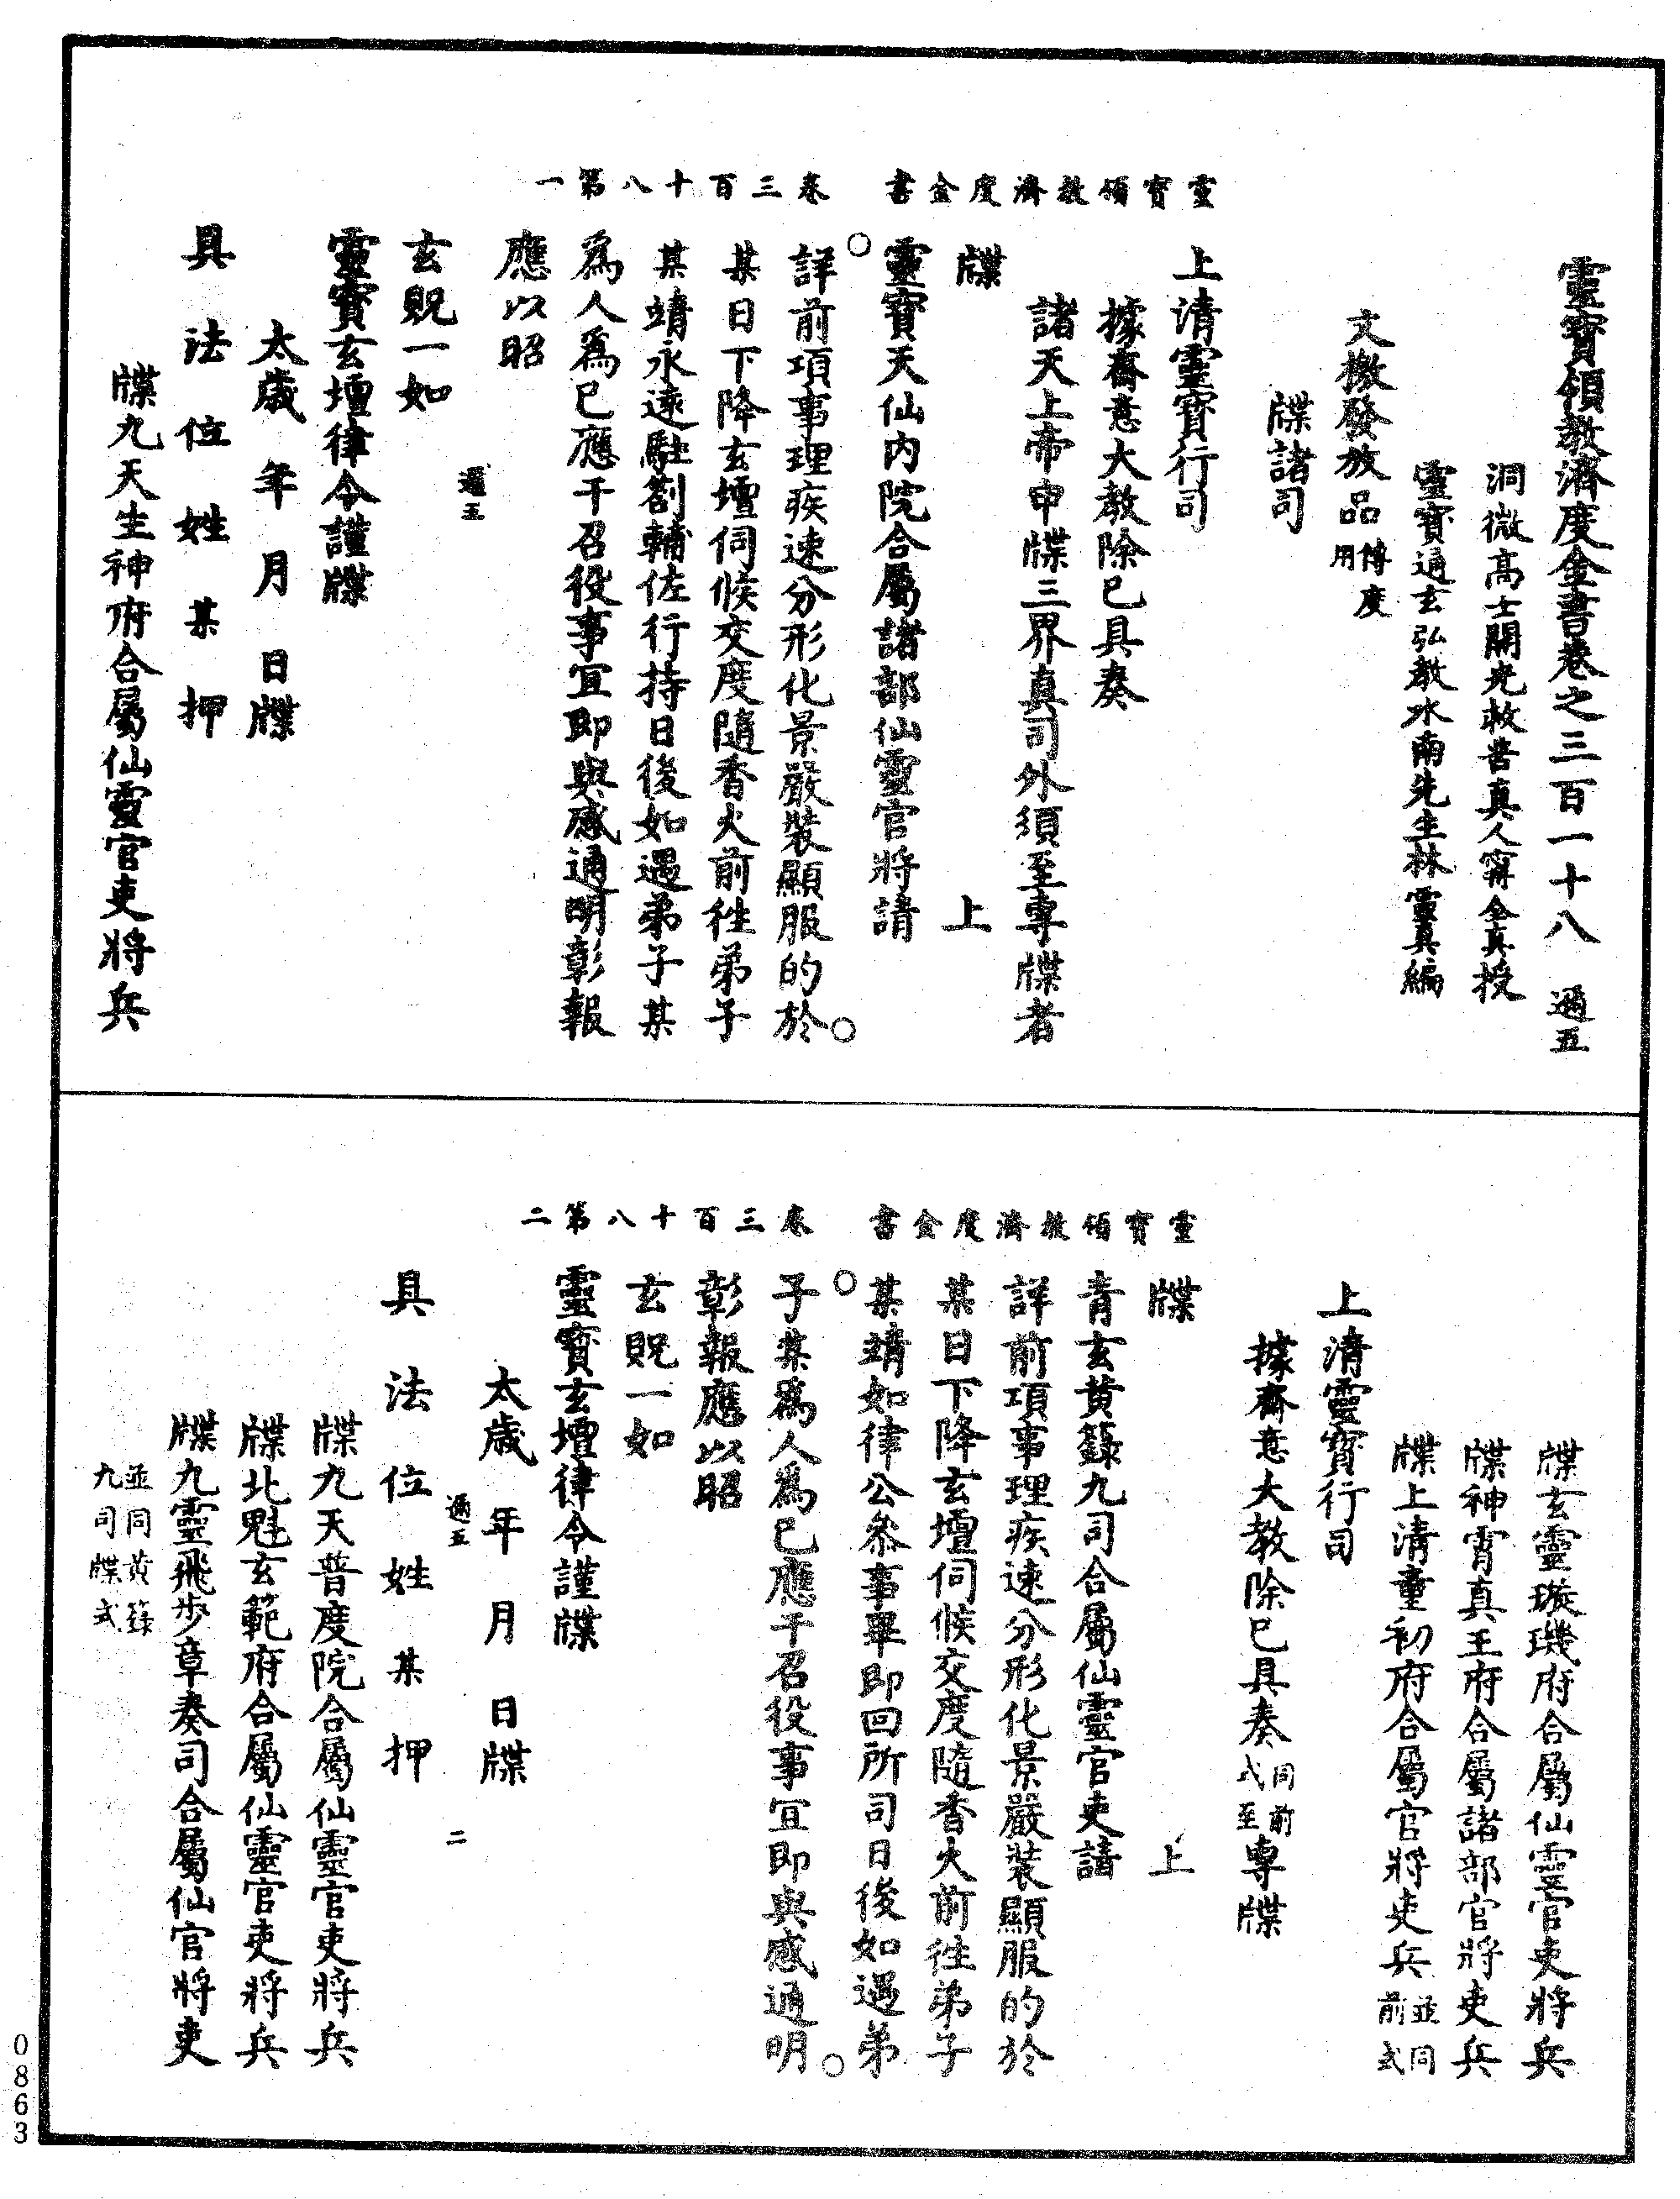 靈寶領教濟度金書卷之三百一十八　通五
洞微高士開光救苦真人甯全真授
靈寶通玄弘教水南先生林靈真編
文檄發放品傳度用
牒諸司
上清靈寶行司
據齋意大教除已具奏
諸天上帝申牒三界真司外須至專牒者
牒　上
靈寶天仙內院合屬諸部仙靈官將請
詳前項事理疾速分形化景嚴裝顯服的於
某日下降玄壇伺候交度隨香火前往弟子
某靖永遠駐劄輔佐行持日後如遇弟子某
為人為已應干召役事宜即與感通明彰報
應以昭
玄貺一如
靈寶玄壇律令謹牒
太歲　年　月　日牒
具　法　位　姓　某　押
牒九天生神府合屬仙靈官吏將兵
靈寶領教濟度金書　卷三百十八第一
通五
牒玄靈璇璣府合屬仙靈官吏將兵
牒神霄真王府合屬諸部官將吏兵
牒上清童初府合屬官將吏兵並同前式
上清靈寶行司
據齋意大教除已具奏同前式至專牒
牒　上
青玄黃籙九司合屬仙靈官吏請
詳前項事理疾速分形化景嚴裝顯服的於
某日下降玄壇伺候交度隨香火前往弟子
某靖如律公參事畢即回所司日後如遇弟
子某為人為已應干召役事宜即與感通明
彰報應以昭
玄貺一如
靈寶玄壇律令謹牒
太歲　年　月　日牒
具　法　位　姓　某　押
牒九天普度院合屬仙靈官吏將兵
牒北魁玄範府合屬仙靈官吏將兵
牒九靈飛步章奏司合屬仙官將吏
並同黃籙九司牒式
靈寶領教濟度金書　卷三百十八第二
通五　二
0863